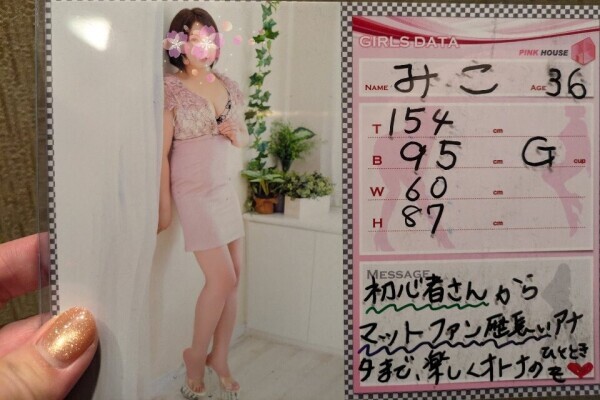 GIRLS DATA
PINK HOUSE
NAME みこ AGE 36
T 154 cm
B 95 cm G cup
W 60 cm
H 87 cm
MESSAGE
初心者さんから
マットファン歴長〜いアナ
タまで、楽しくオトナの ひとときを❤